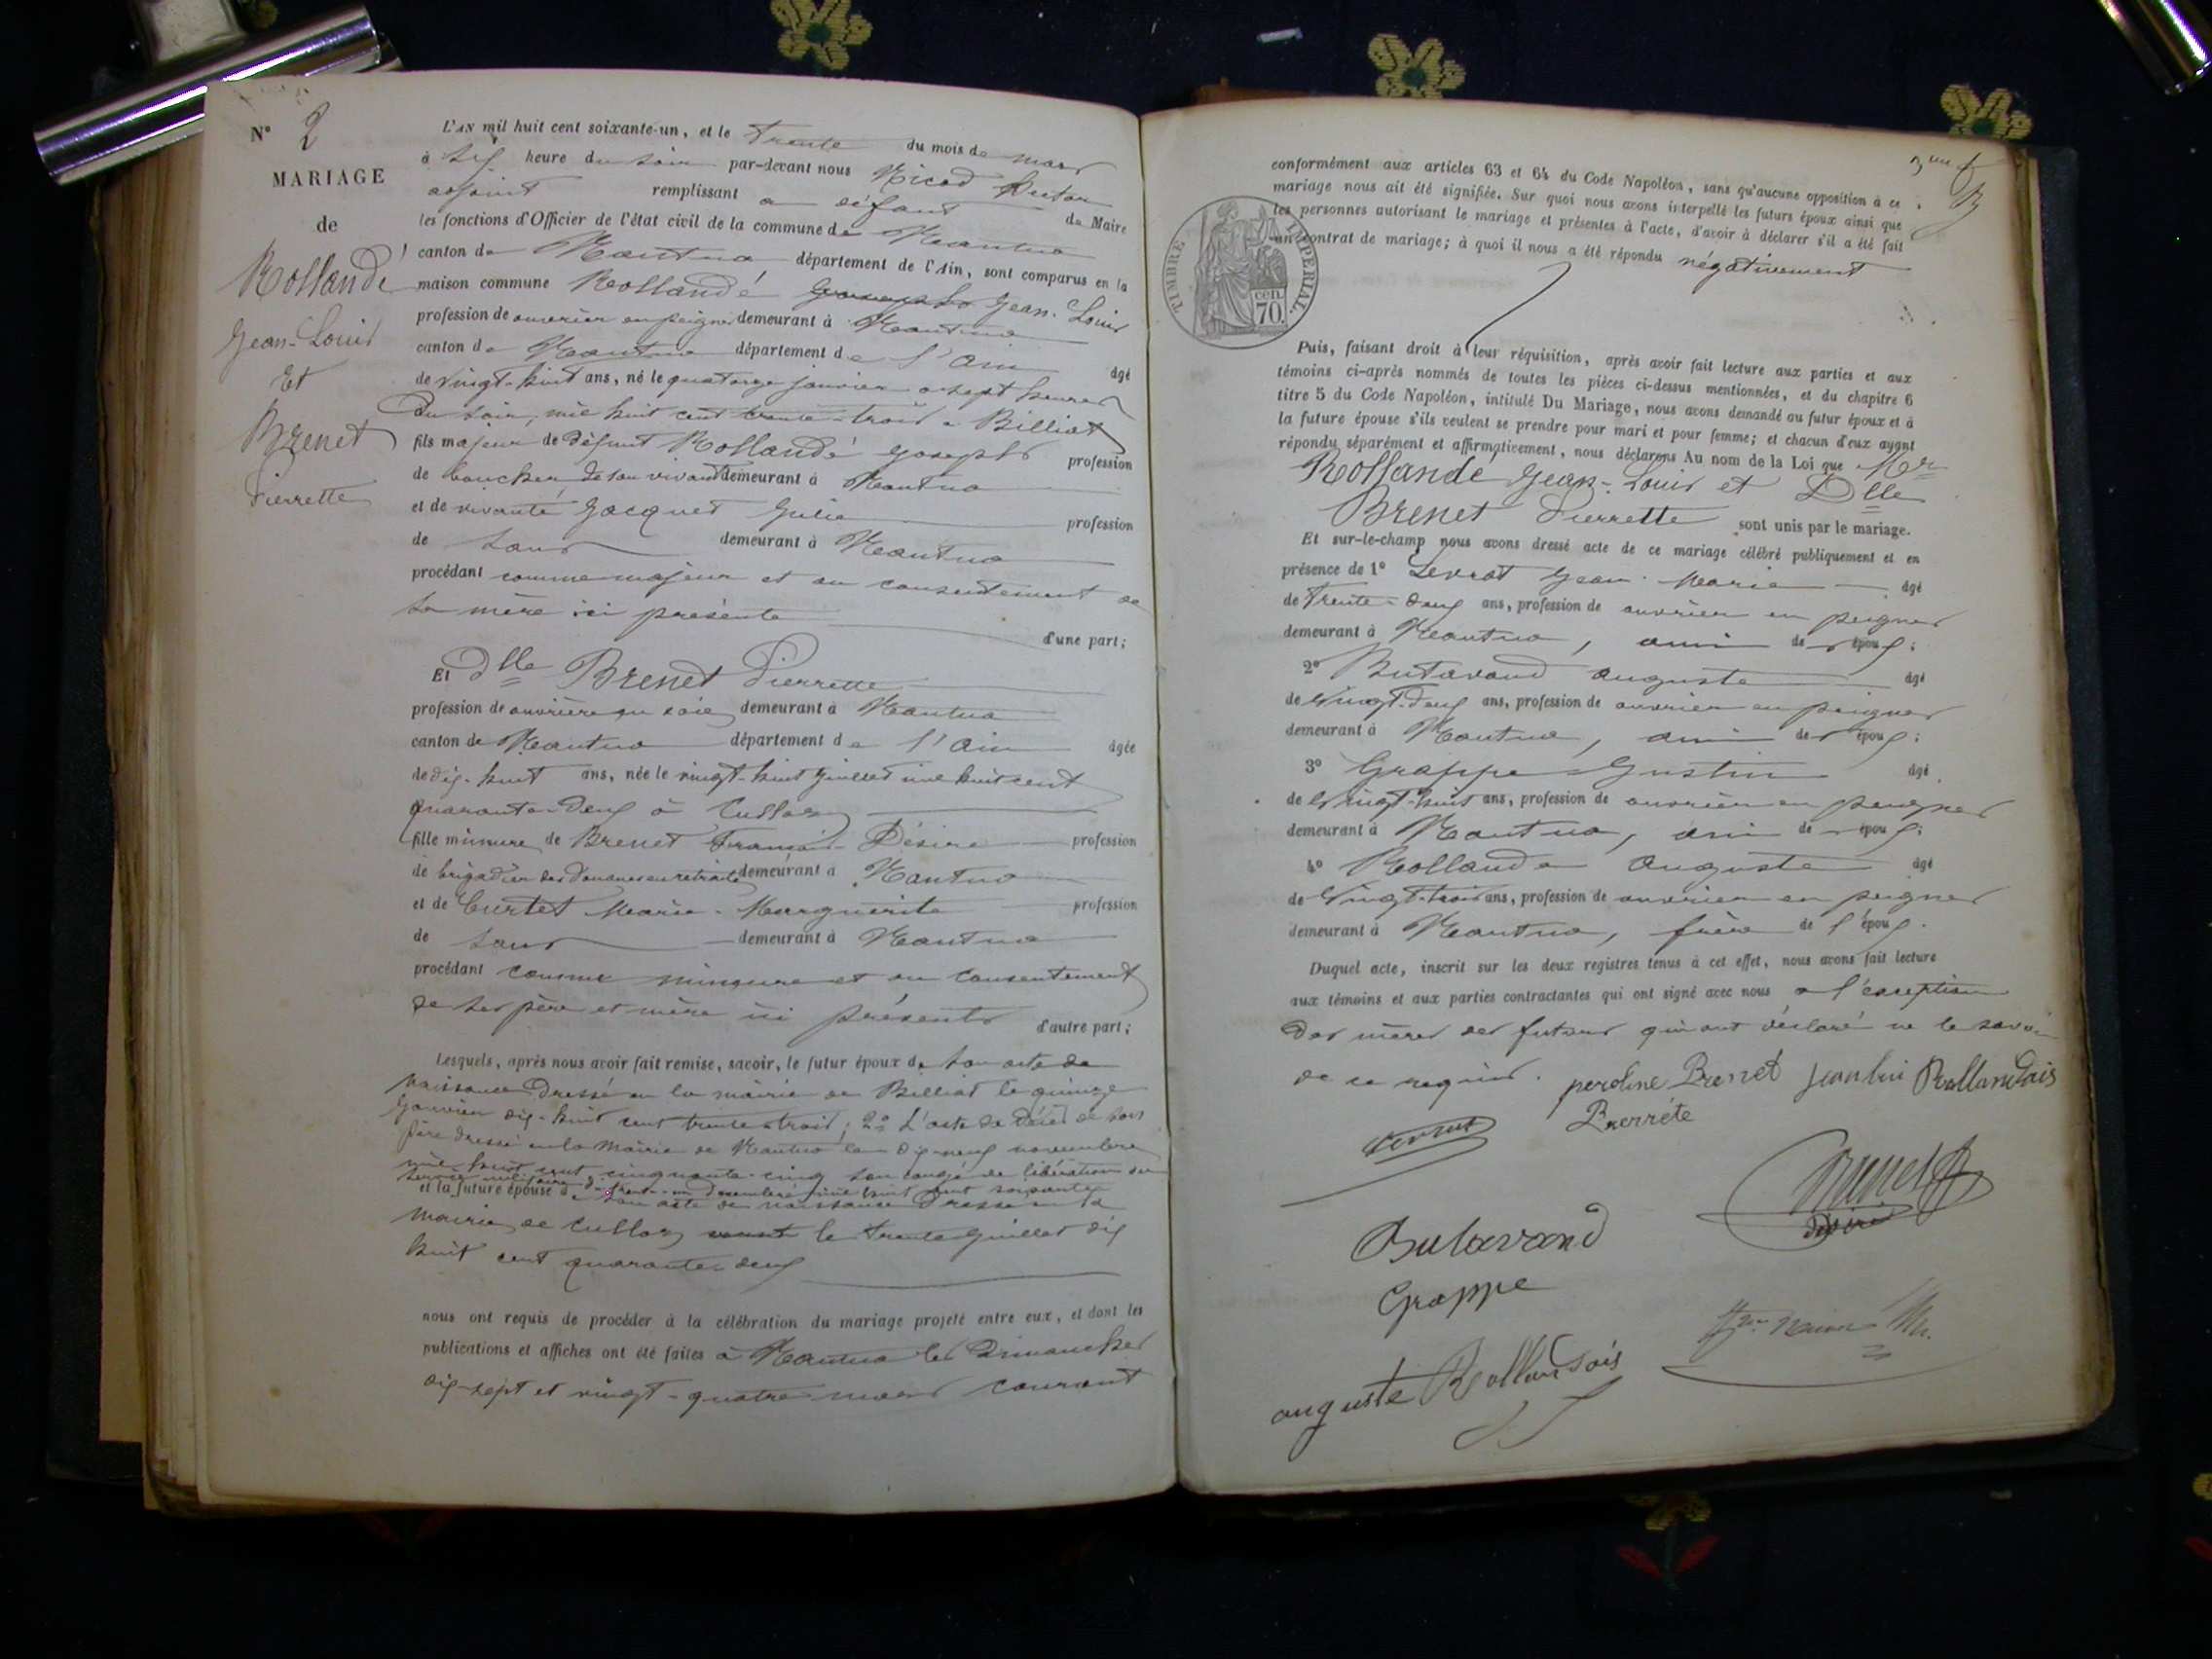 N° 2
MARIAGE
de
Rollandé
Jean-Louis
Et
Brenet
Pierrette
L'AN mil huit cent soixante-un, et le trente du mois de mars
à six heure du soir par-devant nous Nicod Hector
adjoint remplissant a défaut de Maire
les fonctions d'Officier de l'état civil de la commune de Nantua
canton de Nantua département de l'Ain, sont comparus en la
maison commune Rollandé Jean-Louis
profession de ouvrier en peignes demeurant à Nantua
canton de Nantua département de l'Ain âgé
de vingt-huit ans, né le quatorze janvier a sept heures
du soir, mil huit cent trente-trois a Billiat
fils majeur de défunt Rollandé Joseph profession
de boucher de son vivant demeurant à Nantua
et de vivante Jacquet Julie profession
de sans demeurant à Nantua
procédant comme majeur et au consentement de
sa mère ici présente
d'une part;
Et Dlle Brenet Pierrette
profession de ouvrière en soie demeurant à Nantua
canton de Nantua département de l'Ain âgée
de dix-huit ans, née le vingt-huit juillet mil huit cent
quarante-deux à Culloz
fille mineure de Brenet François Désiré profession
de brigadier des Douanes en retraite demeurant à Nantua
et de Curtet Marie-Marguerite profession
de sans demeurant à Nantua
procédant comme mineure et au consentement
de ses père et mère ici présents d'autre part;
Lesquels, après nous avoir fait remise, savoir, le futur époux de son acte de
naissance dressé en la mairie de Billiat le quinze
janvier dix-huit cent trente-trois; 2° L'acte de décès de son
père dressé en la mairie de Nantua le dix-neuf novembre
mil huit cent cinquante-cinq son congé de libération du
service militaire du trente-un décembre mil huit cent soixante
et la future épouse de son acte de naissance dressé en la
mairie de Culloz le trente juillet dix
huit cent quarante-deux
nous ont requis de procéder à la célébration du mariage projeté entre eux, et dont les
publications et affiches ont été faites à Nantua les Dimanches
dix-sept et vingt-quatre mars courant
conformément aux articles 63 et 64 du Code Napoléon, sans qu'aucune opposition à ce
mariage nous ait été signifiée. Sur quoi nous avons interpellé les futurs époux ainsi que
les personnes autorisant le mariage et présentes à l'acte, d'avoir à déclarer s'il a été fait
un contrat de mariage; à quoi il nous a été répondu négativement
TIMBRE IMPERIAL
70 cen.
Puis, faisant droit à leur réquisition, après avoir fait lecture aux parties et aux
témoins ci-après nommés de toutes les pièces ci-dessus mentionnées, et du chapitre 6
titre 5 du Code Napoléon, intitulé Du Mariage, nous avons demandé au futur époux et à
la future épouse s'ils veulent se prendre pour mari et pour femme; et chacun d'eux ayant
répondu séparément et affirmativement, nous déclarons Au nom de la Loi que Mr
Rollandé Jean-Louis et Dlle
Brenet Pierrette sont unis par le mariage.
Et sur-le-champ nous avons dressé acte de ce mariage célébré publiquement et en
présence de 1° Levrat Jean-Marie âgé
de trente-deux ans, profession de ouvrier en peignes
demeurant à Nantua, ami des époux;
2° Butavand Auguste âgé
de vingt-deux ans, profession de ouvrier en peignes
demeurant à Nantua, ami des époux;
3° Grappe Justin âgé
de vingt-huit ans, profession de ouvrier en peignes
demeurant à Nantua, ami des époux;
4° Rollande Auguste âgé
de vingt-trois ans, profession de ouvrier en peignes
demeurant à Nantua, frère de l'époux.
Duquel acte, inscrit sur les deux registres tenus à cet effet, nous avons fait lecture
aux témoins et aux parties contractantes qui ont signé avec nous a l'exception
des mères des futurs qui ont déclaré ne le savoir
de ce requis. peroline Brenet Jean Rollandais
Pierrète
Levrat
Brenet
Désiré
Butavand
Grappe
auguste Rollandais